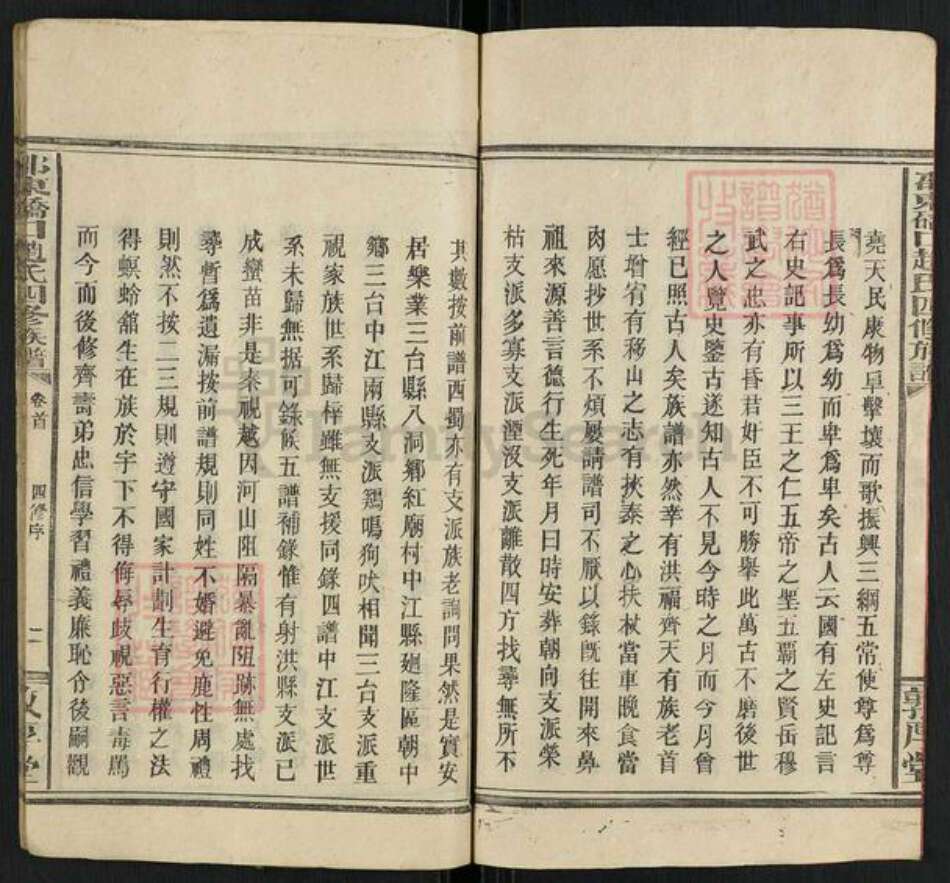 堯天民康物阜擊壤而歌振興三綱五常使尊爲尊
長爲長幼爲幼而卑爲卑矣古人云國有左史記言
右史記事所以三王之仁五帝之聖五霸之賢岳穆
武之忠亦有昏君奸臣不可勝舉此萬古不磨後世
之人覽史鑒古遂知古人不見今時之月而今月曾
經已照古人矣族譜亦然幸有洪福齊天有族老首
士增宥有移山之志有挾泰之心扶杖當車晚食當
肉愿抄世系不煩屢請譜司不厭以錄旣往開來鼻
祖來源善言德行生死年月日時安葬朝向支派榮
枯支派多寡支派湮沒支派離散四方找尋無所不
其數按前譜西蜀亦有支派族老詢問果然是實安
居樂業三台縣八洞鄉紅廟村中江縣廻隆區朝中
鄉三台中江兩縣支派鷄鳴狗吠相聞三台支派重
視家族世系歸梓雖無支援同錄四譜中江支派世
系未歸無据可錄候五譜補錄惟有射洪縣支派已
成蠻苗非是秦視越因河山阻隔暴亂阻跡無處找
尋暫爲遺漏按前譜規則同姓不婚避免鹿性周禮
則然不按二三規則遵守國家計劃生育行權之法
得螟蛉舘生在族於宇下不得侮辱歧視惡言毒罵
而今而後修齊壽弟忠信學習禮義廉恥令後嗣觀
橋口趙氏四修族譜
卷首
四修序
二
敦厚堂